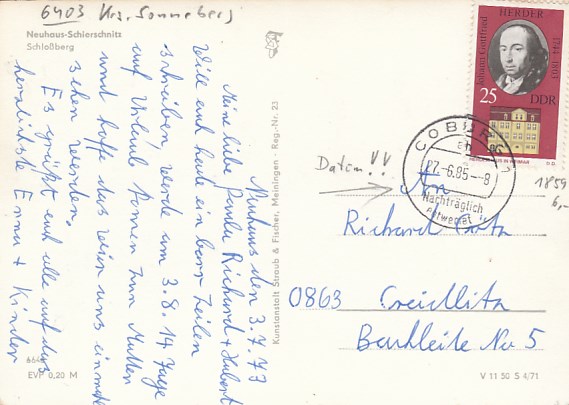 6403 Krs. Sonneberg
Neuhaus-Schierschnitz
Schloßberg
Neuhaus den 3.7.73
Meine liebe Paula Richard + Hubert
Will euch heute ein paar Zeilen
schreiben, werde um 3.8. 14 Tage
auf Urlaub komen zur Mutter
und hoffe das wir uns einmal
sehen werden.
Es grüßt euch alle auf das
herzlichste Erna + Kinder
EVP 0,20 M
Kunstanstalt Straub & Fischer, Meiningen - Reg.-Nr. 23
Johann Gottfried
HERDER
1744-1803
25
DDR
COBURG 1
27.-6.85-8
Nachträglich
entwertet
Datum!!
1859
6,-
An
Richard
0863 Creidlitz
Bachleite No 5
V 11 50 S 4/71